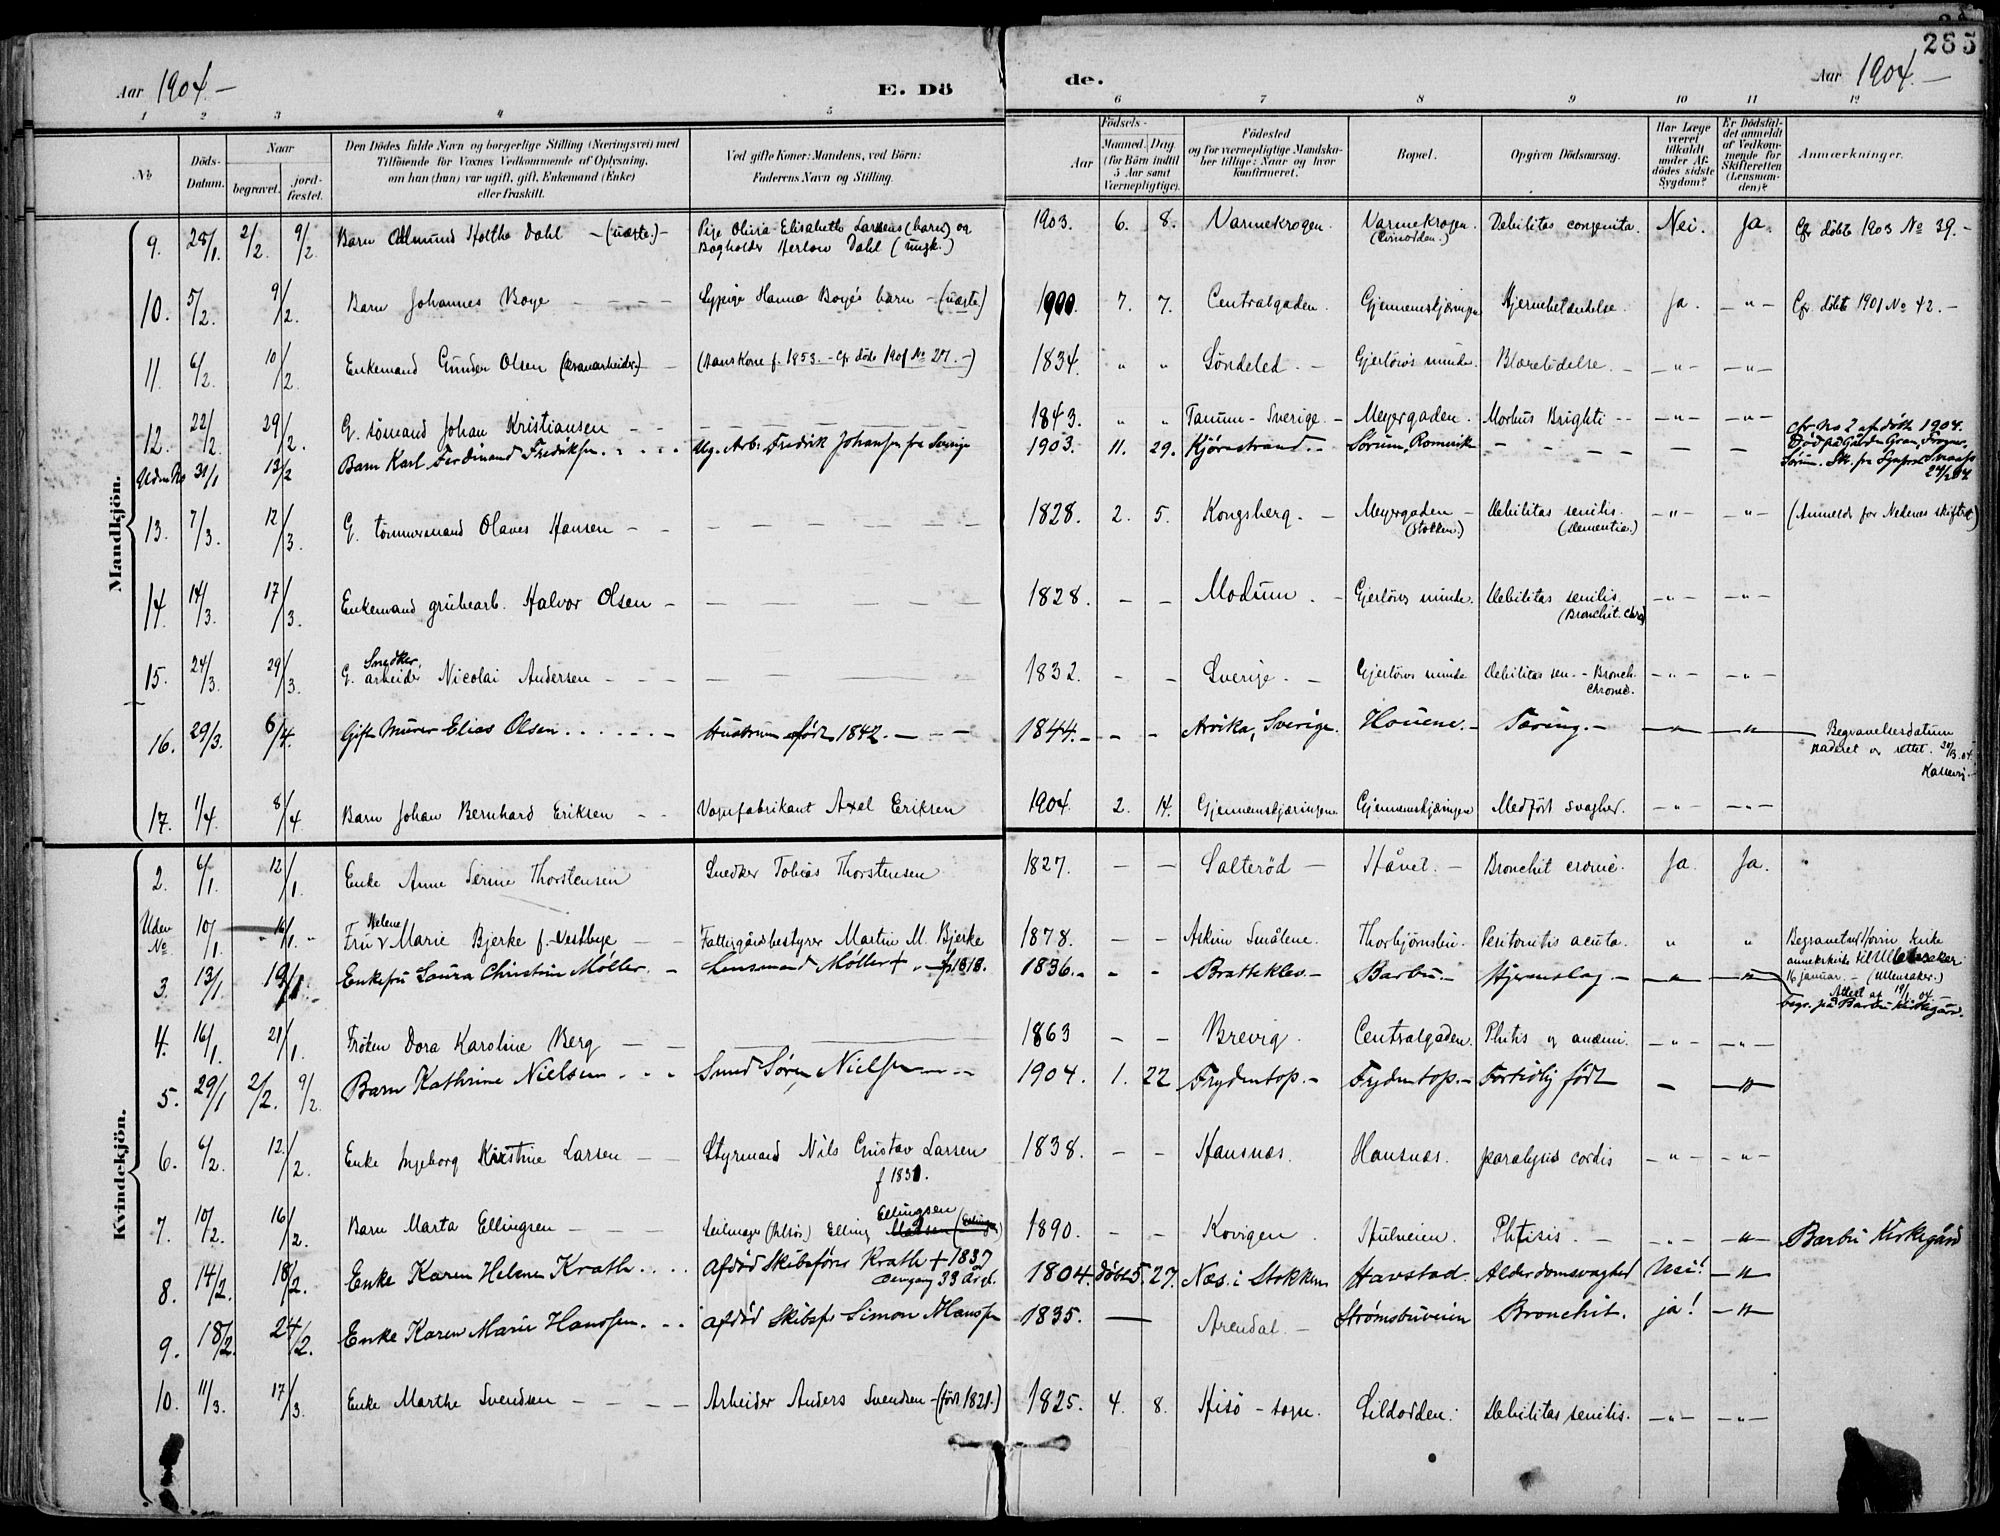 285
Aar 1904.—
E. Dö
de.
Aar 1904.—
1 2 3 4 5 6 7 8 9 10 11 12
No
Döds-Datum.
Naar
begravet.
jord-fæstet.
Den Dödes fulde Navn og borgerlige Stilling (Næringsvei) med
Tilföiende för Voxnes Vedkommende af Oplysning,
om han (hun) var ugift, gift, Enkemand (Enke)
eller fraskilt.
Ved gifte Koner: Mandens, ved Börn:
Faderens Navn og Stilling.
Födsels-
Aar
Maaned.
Dag
(for Börn indtil
5 Aar samt
Værnepligtige).
Födested
og for værnepligtige Mandska-
ber tillige: Naar og hvor
konfirmeret.
Bopæl.
Opgiven Dödsaarsag.
Har Læge
været
tilkaldt
under Af-
dödes sidste
Sygdom?
Er Dödsfal-
det anmeldt
af Vedkom-
mende for
Skifteretten
(Lensman-
den)?
Anmærkninger.
Mandkjön.
9. 28/1. 2/2. 9/2. Barn Almund Holthe Dahl — (uægte.) — Pige Olivia Elisabeth Larsens (barn) og 1903. 6. 8. Varmekrogen. Varmekrogen. Debilitas congenita. Nei. Ja. Cfr døbte 1903 No 39. —
Bogholder Herlow Dahl (ungk.)
10. 5/2. 9/2. Barn Johannes Boye — — — Sypige Hanna Boyes barn — (uægte) 1900. 7. 7. Centralgaden. Gjennemskjæringen Hjernebetændelse. Ja. — " — Cfr døbte 1901 No 42. —
11. 6/2. 10/2. Enkemand Gunder Olsen (Hans Kone f. 1853. — Cfr døde 1901 No 27. —) 1834. " " Söndeled. — Gjerlöws minde. Blærelidelse. — — " — — " —
12. 22/2. 29/2. G. sömand Johan Kristiansen — — 1843. " " Tanum — Sverige — Meyergaden. Morbus Brighti — — — " — — " —
Uden No 31/1 13/2 Barn Karl Ferdinand Fredriksen. Ug. Arb. Fredrik Johansen fra Sverige 1903. 11. 29. Kjörrestrand. — Sørum, Romerike cfr No 2 af døbte 1904.
Död på Gården Gran, Frogner
Sørum.
13. 7/3. 12/3. G. tömmermand Olaves Hansen — — 1828. 2. 5. Kongsberg. — Meyergaden — Debilitas senilis. — " — — " — (Anmeldt for Nedenes skifteret)
(Stokken.) (dementia.)
14. 14/3. 17/3. Enkemand grubearb. Halvor Olsen — 1828. — — Modum. — Gjerlöws minde. Debilitas senilis. — " — — " —
(Bronchit. chron)
15. 24/3. 29/3. G. Snedker arbeider Nicolai Andersen — — 1832. — — Sverige. — Gjerlöws minde Debilitas sen. — Bronch. — " — — " —
chronic.
16. 29/3. 6/4. Gift Murer Elias Olsen . . . Hustruen født 1842. — 1844. — — — Arvika, Sverige. Houene. — Tæring. — — " — — " — Begravelsesdatum
raderet og rettet.
17. 1/4. 8/4 Barn Johan Bernhard Eriksen — — Vognfabrikant Axel Eriksen 1904. 2. 14. Gjennemskjæringen Gjennemskjæringen Medfört svaghed. — " — — " —
Kvindekjön.
2. 6/1. 12/1. Enke Anne Serine Thorstensen Snedker Tobias Thorstensen 1827. — — Salteröd — Håvet. — Bronchit cronic. Ja. Ja.
Uden No 10/1. 16/1. Fru Helene Marie Bjerke f. Vestbye — — Fattiggårdsbestyrer Martin M. Bjerke 1878. — — Askim Smålene. Thorbjörnsbu. Peritonitis acuta. " " Begravet ved
annekskirke til Ullensaker
16 januar. — (Ullensaker.)
3. 13/1. 19/1. Enkefru Laura Christine Møller. — Lensmand Møller + f. 1818. 1836. — — — Bratteklev. — Barbu. — Hjerneslag. — — " — — " — begr. på Barbu Kirkegård.
4. 16/1. 21/1. Frøken Dora Karoline Berg — — 1863 — — Brevig. Centralgaden. Phtisis og anæmi. — " — — " —
5. 29/1 2/2. 9/2. Barn Kathrine Nielsen . . . Smed Søren Nielsen — — 1904. 1. 22 Frydentop. — Frydentop. — Fortidlig født — — " —
6. 6/2. 12/2. Enke Ingeborg Kirstine Larsen — — Styrmand Nils Gustav Larsen 1838. — — Hansnæs. Hansnæs. paralysis cordis — " — — " —
f 1831.
7. 10/2. 16/2. Barn Marta Ellingsen — — — Seilmager Elling Ellingsen 1890. — — Kovigen. Hulveien. Phtisis. — — " — — " — Barbu Kirkegård
8. 14/2. 18/2. Enke Karen Helene Krath . . . Afdød Skibsfører Krath + 1837 1804. døbt 5. 27. Næs i Stokken Havstad. Alderdomsvaghed Nei! — " —
dengang 33 år gl.
9. 18/2. 24/2. Enke Karen Marie Hanssen . . . afdød Skibsfr Simon Hanssen 1835. — Arendal. — Strømsbuveien Bronchit. ja! — " —
10. 11/3. 17/3. Enke Marthe Svendsen — — — Arbeider Anders Svendsen — (født 1821.) 1825. 4. 8. Hisö — sogn. Sildodden. Debilitas senilis. — " — — " —